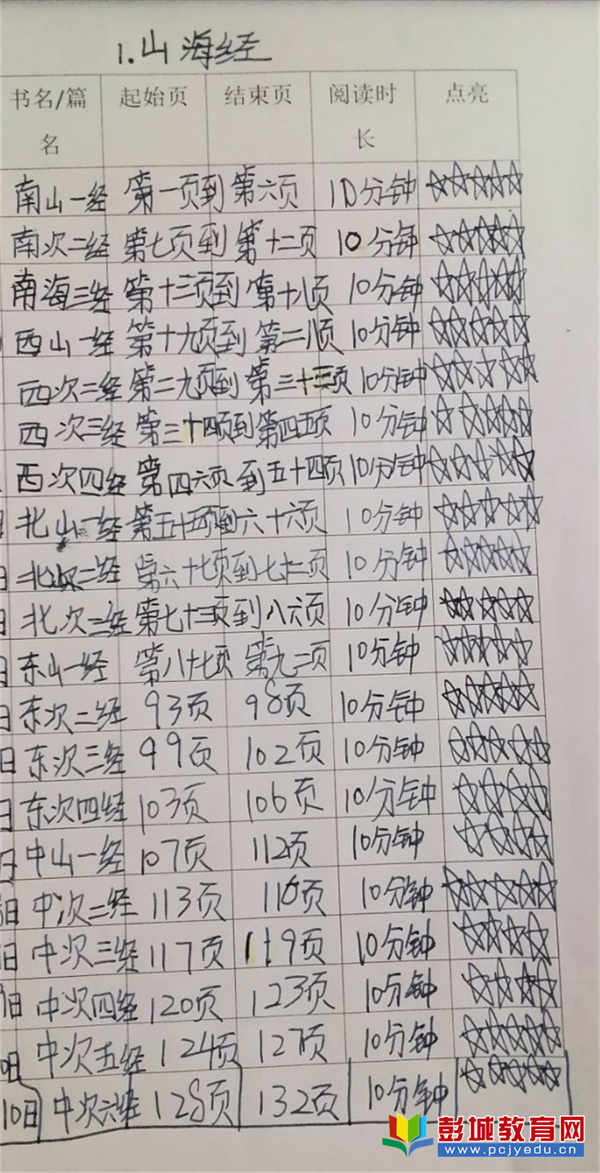 1.山海经
书名/篇名 起始页 结束页 阅读时长 点亮
南山一经 第一页到第六页 10分钟
南次二经 第七页到第十二页 10分钟
南海三经 第十三页到第十八页 10分钟
西山一经 第十九页到第二八页 10分钟
西次二经 第二九页到第三十三页 10分钟
西次三经 第三十四页到第四五页 10分钟
西次四经 第四六页到五十四页 10分钟
北山一经 第五十五页到六十六页 10分钟
日 北次二经 第六十七页到七十二页 10分钟
日 北次二经 第七十三页到八六页 10分钟
日 东山一经 第八十七页 第九二页 10分钟
日 东次二经 93页 98页 10分钟
日 东次三经 99页 102页 10分钟
日 东次四经 103页 106页 10分钟
日 中山一经 107页 112页 10分钟
日 中次二经 113页 116页 10分钟
日 中次三经 117页 119页 10分钟
日 中次四经 120页 123页 10分钟
日 中次五经 124页 127页 10分钟
10日 中次六经 128页 132页 10分钟
彭城教育网
www.pcjyedu.cn